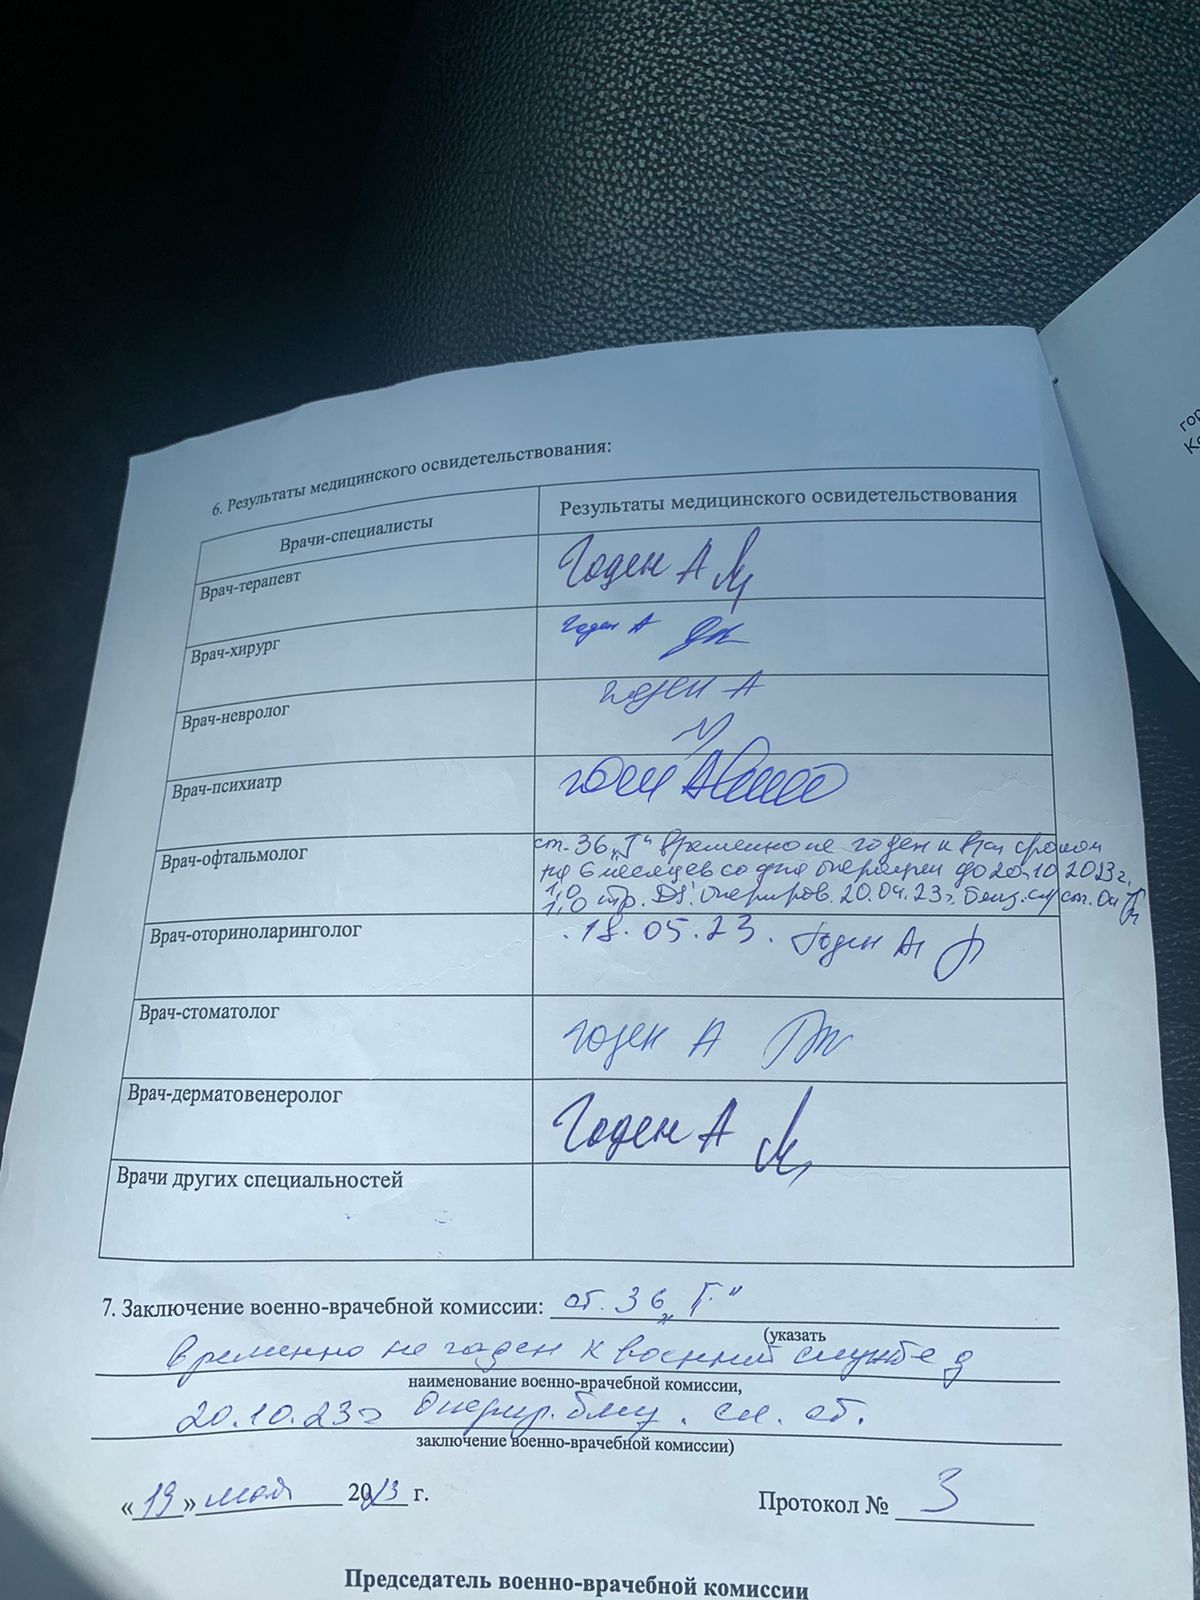 6. Результаты медицинского освидетельствования:
Врачи-специалисты
Результаты медицинского освидетельствования
Врач-терапевт
Годен А
Врач-хирург
годен А
Врач-невролог
годен А
Врач-психиатр
годен А
Врач-офтальмолог
ст. 36 „Г“ временно не годен к в/сл сроком
на 6 месяцев со дня операции до 20.10.2023г.
1,0
1,0 опериров. 20.04.23г. близ. ст.
Врач-оториноларинголог
18.05.23. Годен А
Врач-стоматолог
годен А
Врач-дерматовенеролог
Годен А
Врачи других специальностей
7. Заключение военно-врачебной комиссии: ст. 36 „Г“
(указать
временно не годен к военной службе д
наименование военно-врачебной комиссии,
20.10.23г Опериp. близ. ст.
заключение военно-врачебной комиссии)
«19» мая 2023 г.
Протокол № 3
Председатель военно-врачебной комиссии
гор